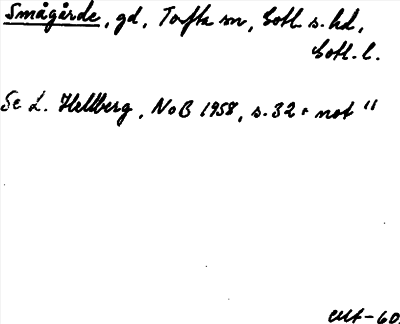 Smågårde, gd, Tofta sn, Gotl. s. hd,
Gotl. l.
Se L. Hellberg, NoB 1958, s. 32 + not 11
-60.